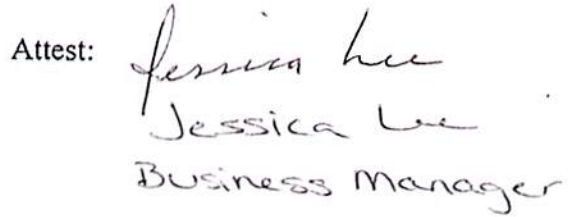 Attest: Jessica Lee
Jessica Lee
Business Manager